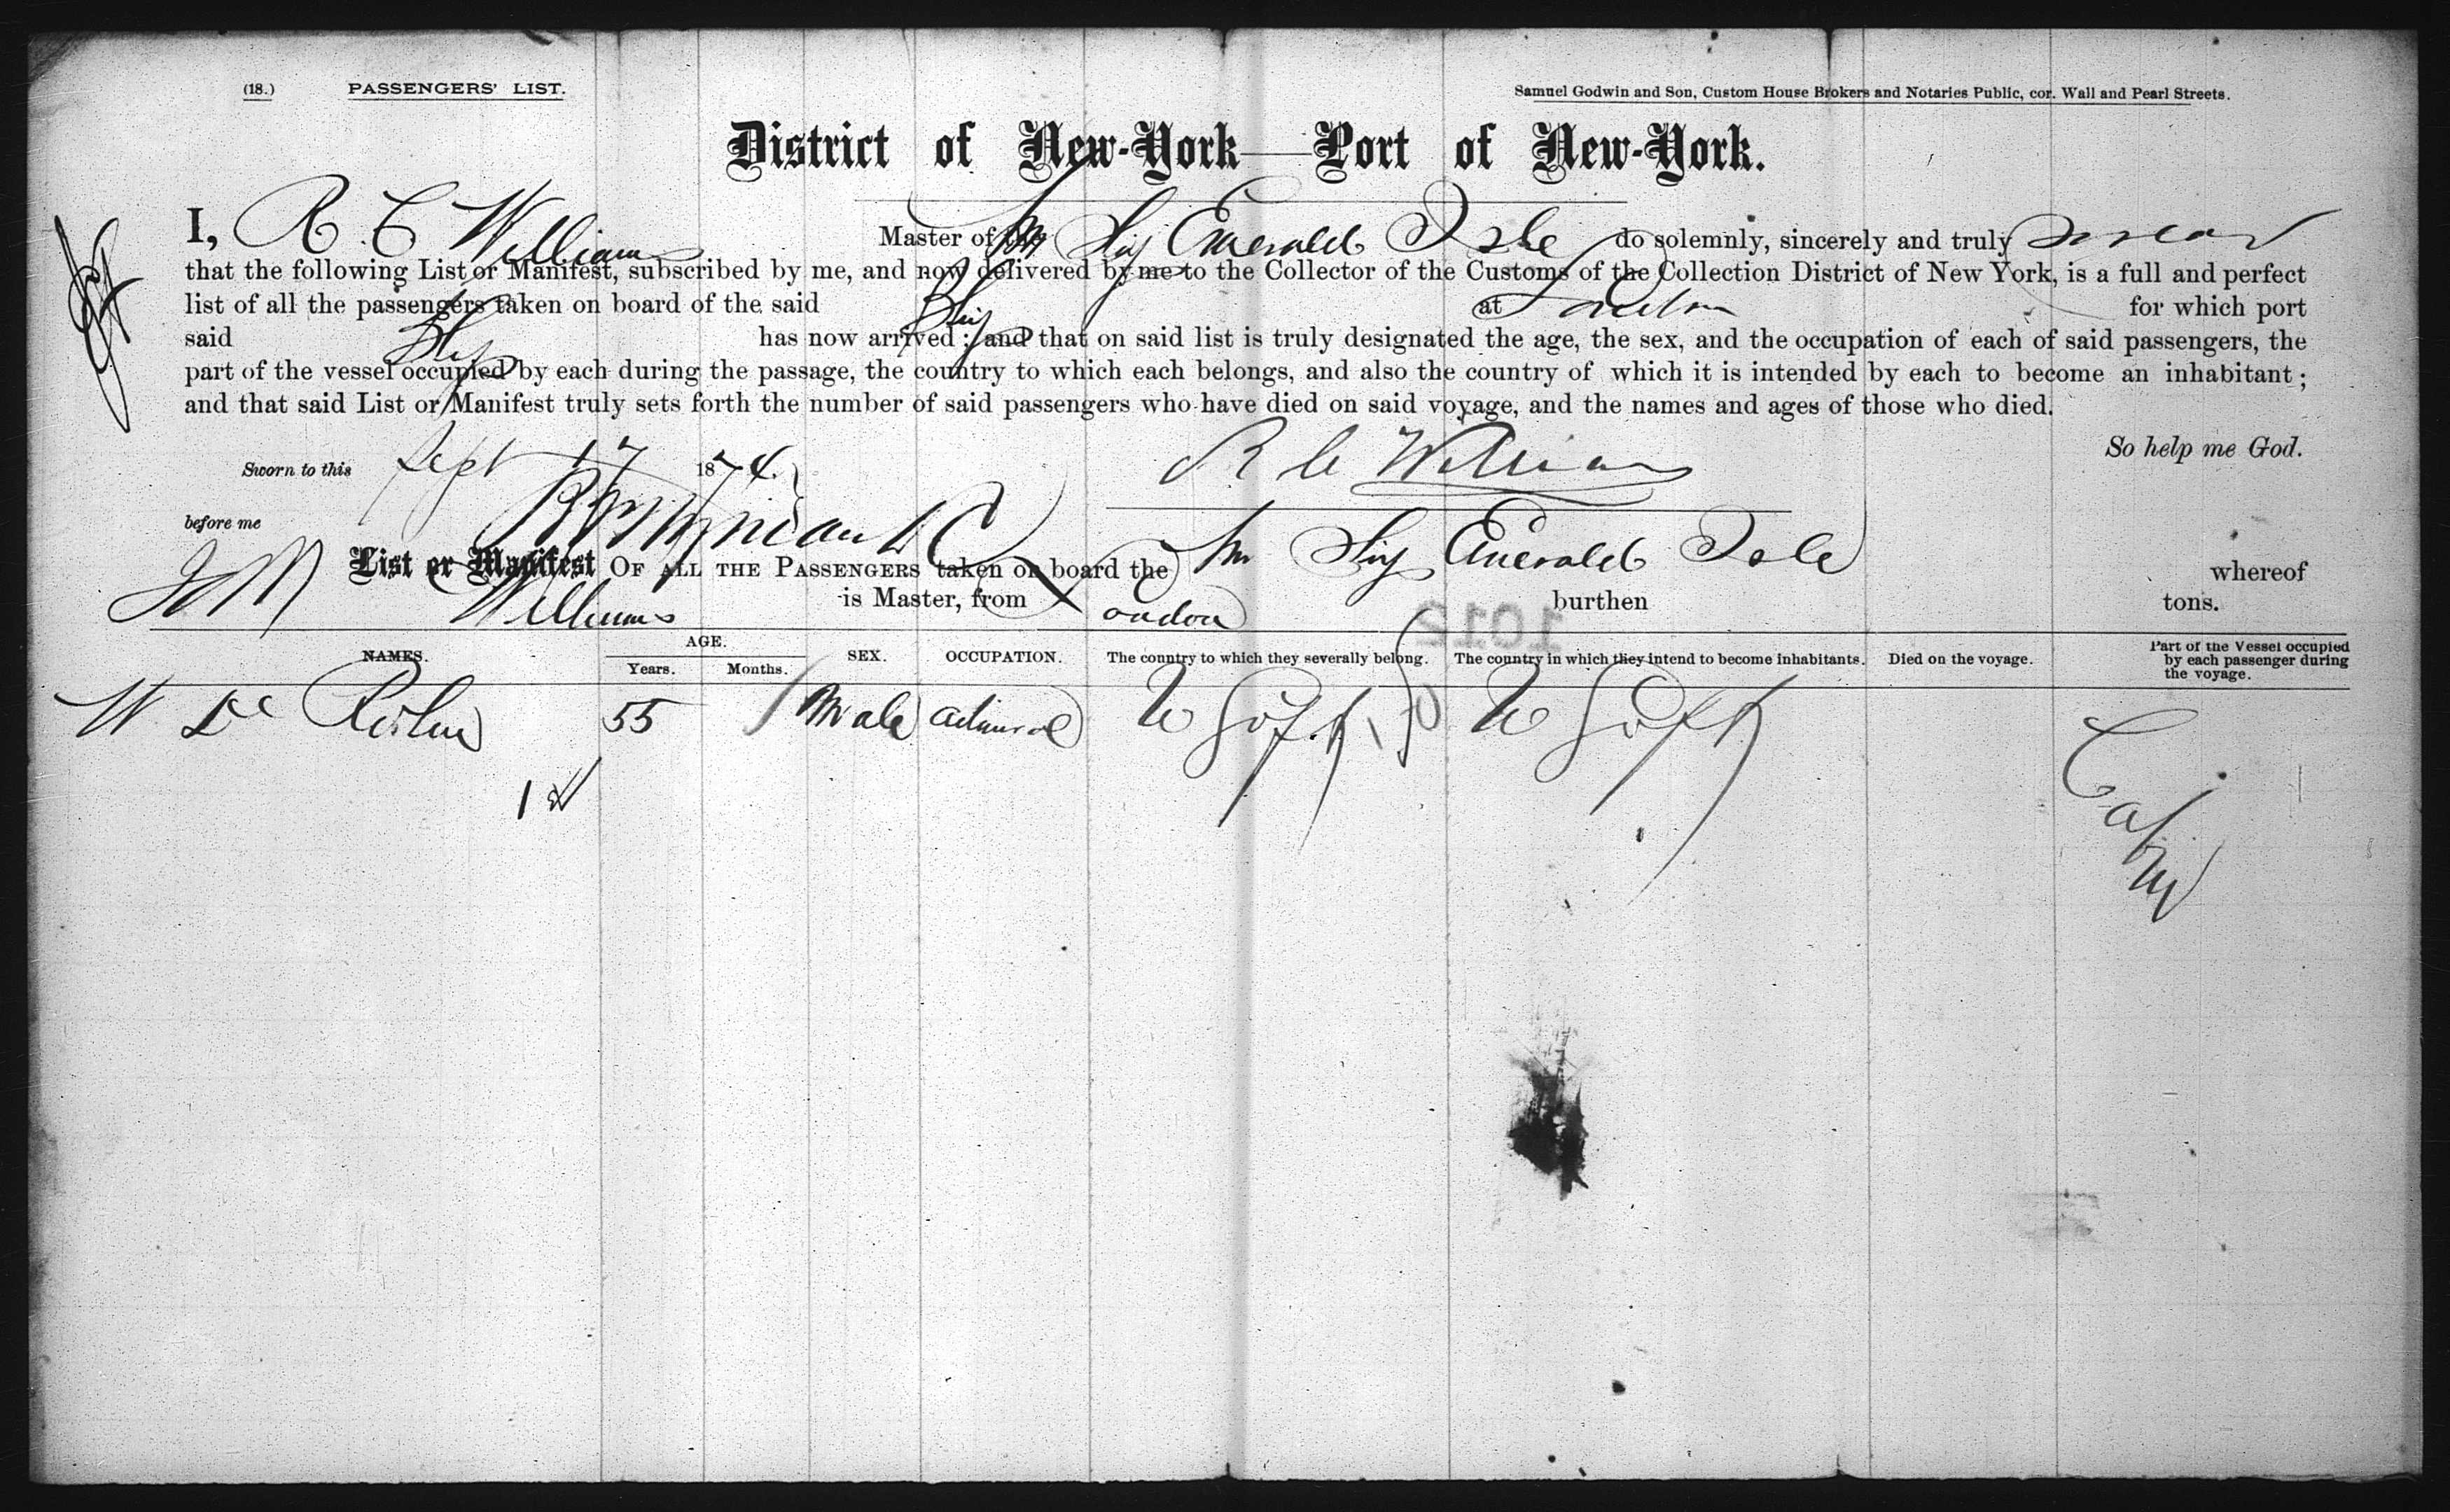 (18.) PASSENGERS' LIST.
Samuel Godwin and Son, Custom House Brokers and Notaries Public, cor. Wall and Pearl Streets.
District of New-York—Port of New-York.
I, R C Williams Master of the Ship Emerald Isle do solemnly, sincerely and truly swear
that the following List or Manifest, subscribed by me, and now delivered by me to the Collector of the Customs of the Collection District of New York, is a full and perfect
list of all the passengers taken on board of the said Ship at London for which port
said Ship has now arrived; and that on said list is truly designated the age, the sex, and the occupation of each of said passengers, the
part of the vessel occupied by each during the passage, the country to which each belongs, and also the country of which it is intended by each to become an inhabitant;
and that said List or Manifest truly sets forth the number of said passengers who have died on said voyage, and the names and ages of those who died.
So help me God.
Sworn to this Sept 17 1874. R C Williams
before me
List or Manifest OF ALL THE PASSENGERS taken on board the Ship Emerald Isle whereof
Williams is Master, from London burthen tons.
1012
NAMES. AGE. Years. Months. SEX. OCCUPATION. The country to which they severally belong. The country in which they intend to become inhabitants. Died on the voyage. Part of the Vessel occupied by each passenger during the voyage.
W 55 Male Cabin